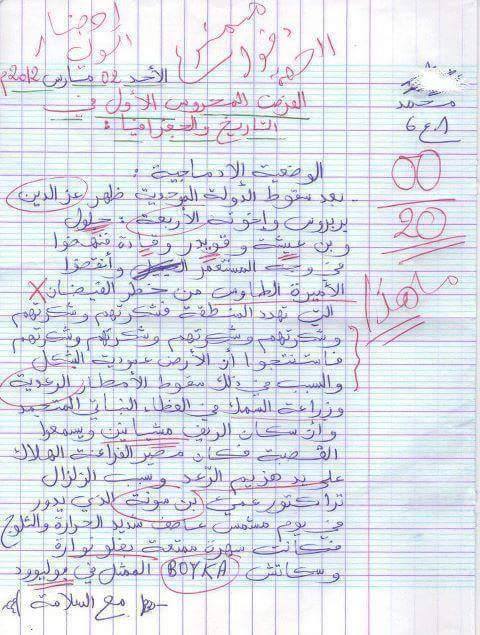 احضار الولي
مهتمش
الأحد 02 مارس 2012م
محمد
8 ع 6
الفرض المحروس الأول في
التاريخ والجغرافيا :
00
20
الوضعية الإدماجية :
- بعد سقوط الدولة الموحدية ظهر عز الدين
بربروس وإخوته الأربعة : جلول
وبن عيشة وقويدر وقادة فنهضوا
في وجه المستعمر وأنقذوا
الأميرة الطاوس من خطر الفيضان X
التي تهدد المنطقة فشكرتهم وشكرتهم
وشكرتهم وشكرتهم وشكرتهم وشكرتهم
ما هذا
فاستنتجوا أن الأرض عمودية الشكل
والسبب في ذلك سقوط الأمطار الرعدية
وزراعة السمك في الغطاء النباتي المتجمد
وان سكان الريف ويسمعوا
القصبة فكان مصير الفراعنة الهلاك
على يد هزيم الرعد وسبب الزلزال
تراكتور عمي بن مونة الذي يدور
في يوم مشمس عاصف شديد الحرارة والثلوج
فكانت سهرة ممتعة بفلو نوارة
وسكاتش BOYKA الممثل في بوليوود
مع السلامة